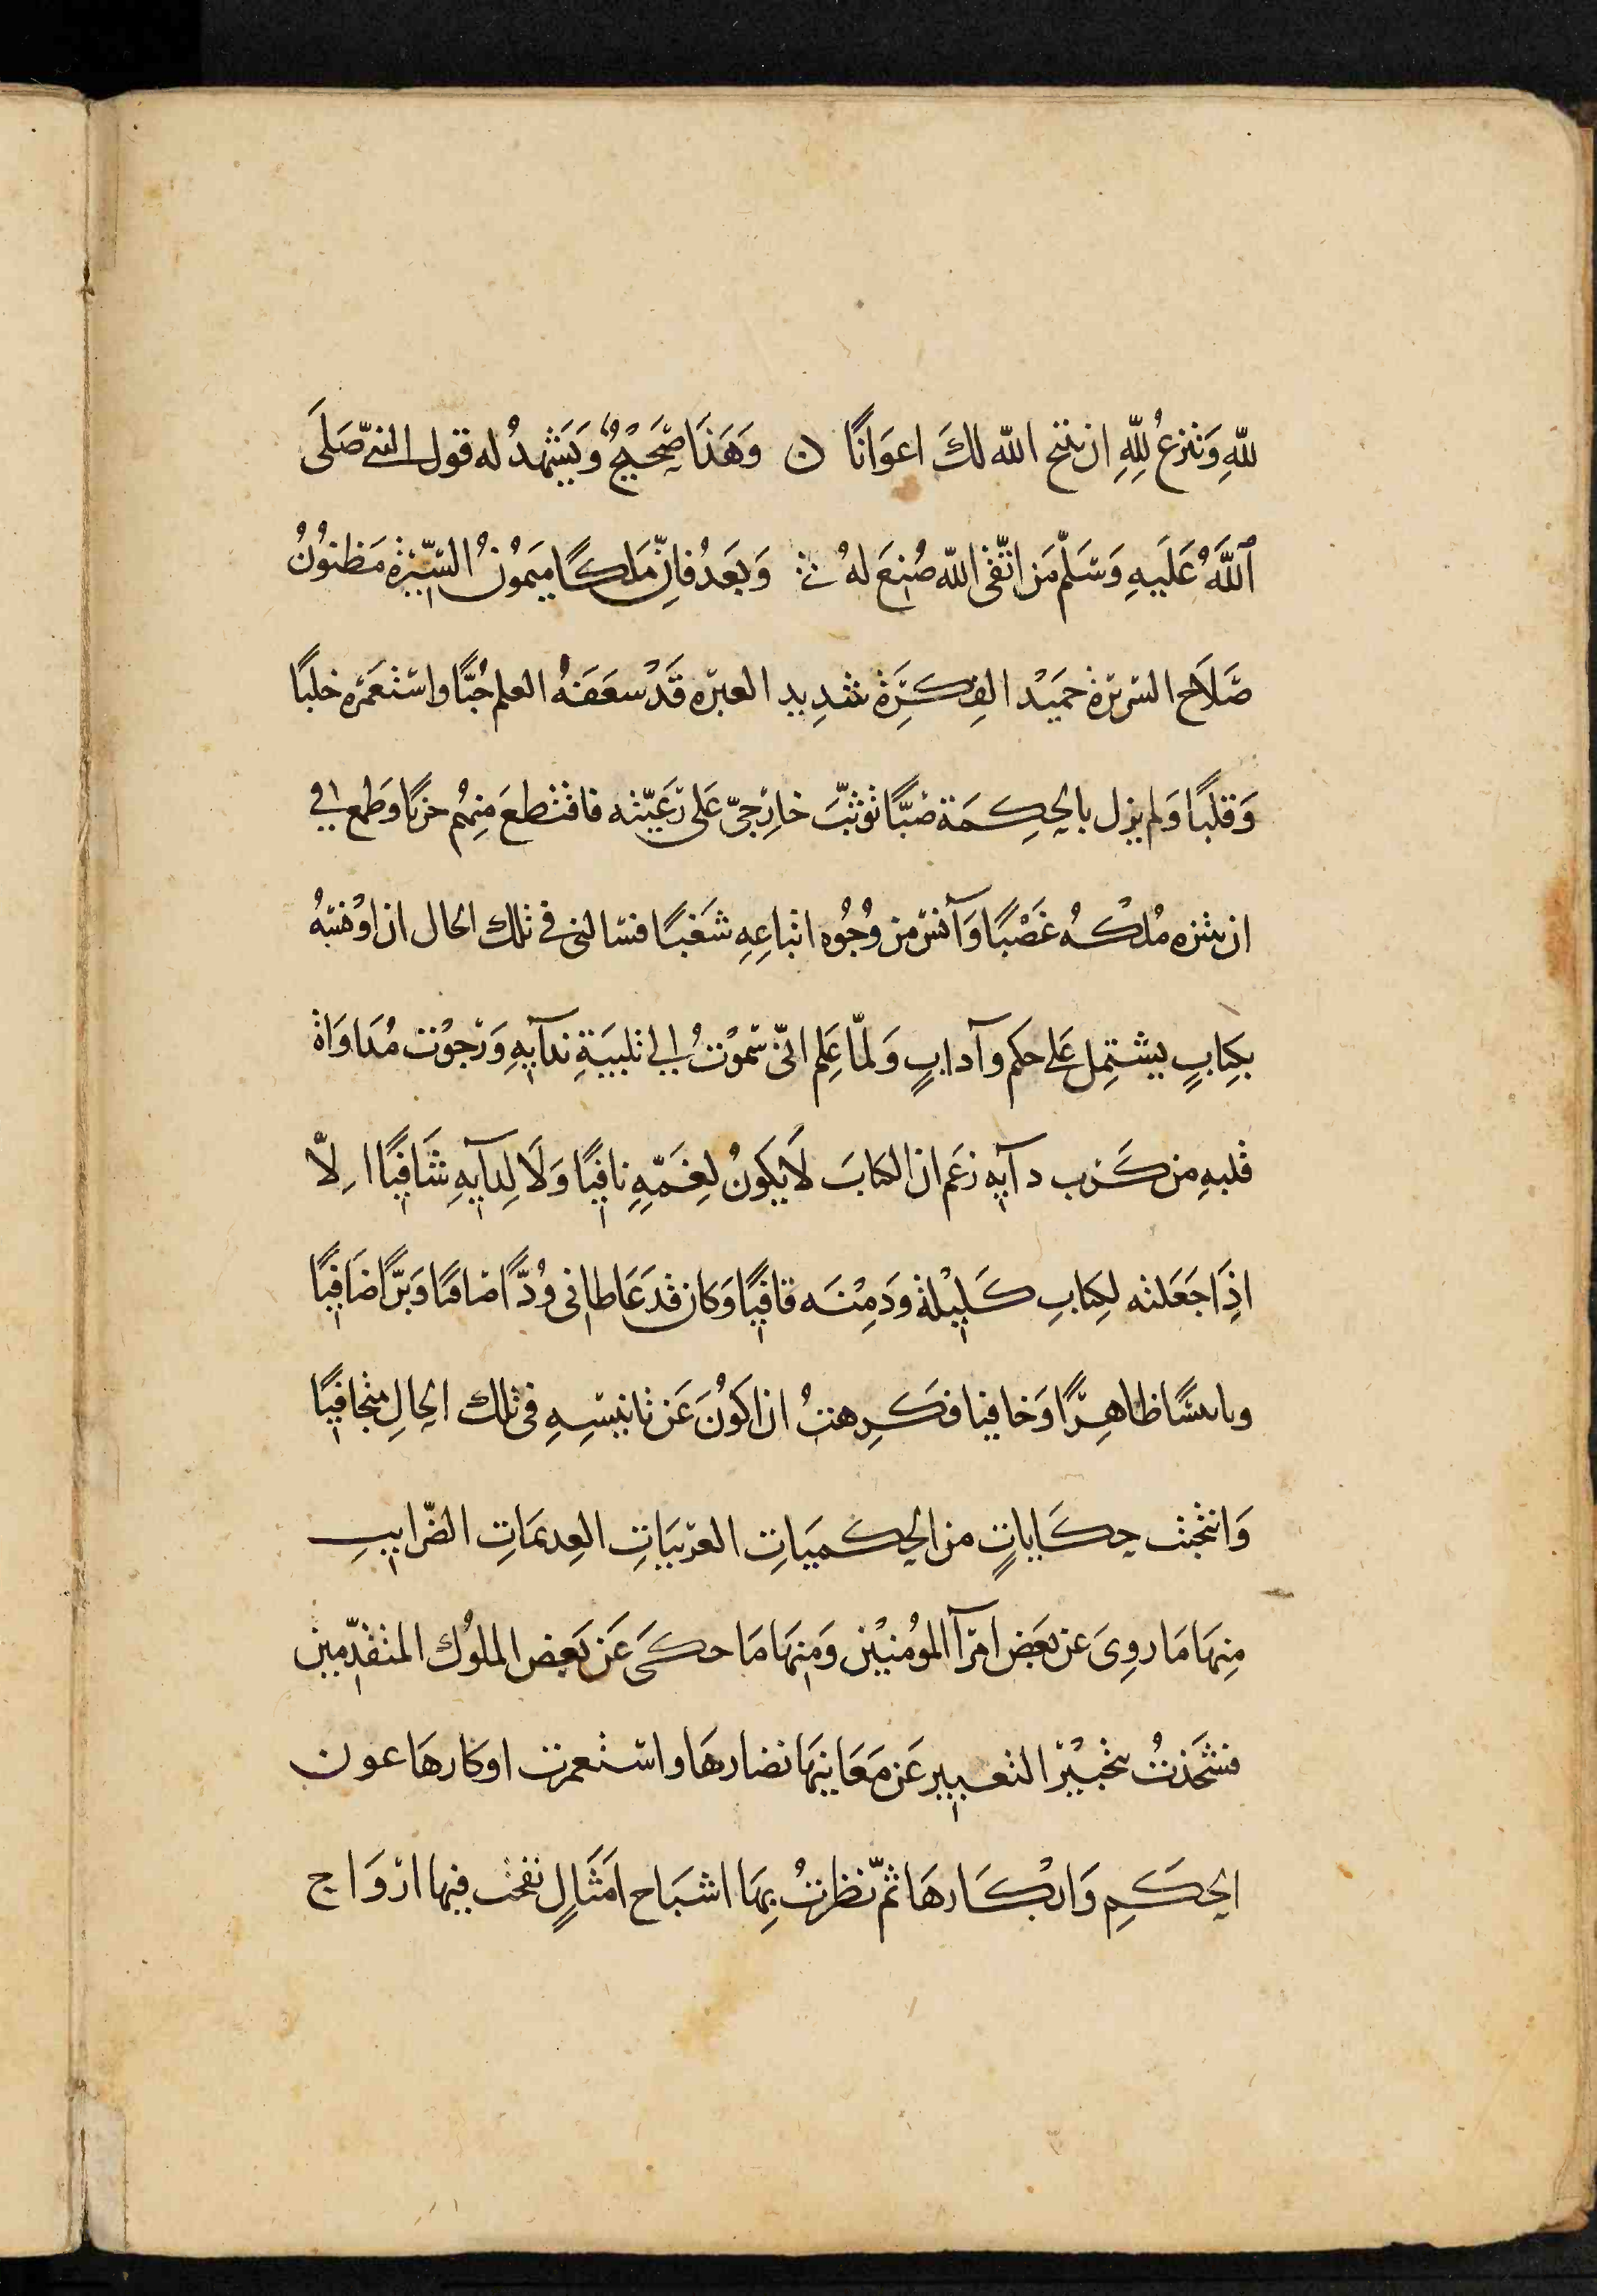 للهِ وَتنزعُ للهِ ان يتيح الله لكَ اعوَانًا ن وَهَذَا صَحِيحٌ وَيَشهدُ له قول النبيّ صَلَى
ٱللَّهُ عَلَيهِ وَسَلّم مَن اتّقى الله صُنِعَ لهُ وَبَعَدُ فانّ مَلكًا مَيمُونُ السِّيرَة مَظنوُنُ
صَلَاح السَريرَة حَمِيْد الفِكرَة شدِيد العبرَه قَدْ سعَفَهُ العلم حُبًّا واستعمَرَه خلبًا
وَقلبًا وَلم يزل بالحِكمَة صَبًّا توَثّبَ خارِجيّ عَلى رَعيّته فاقتطعَ مِنهُم حزبًا وَطمع في
ان يبتزه مُلكهُ غَصْبًا وَآنسَ من وُجُوه اتباعِهِ شَغبًا فسَالني في تلك الحال ان اوْنسَهُ
بكِتابٍ يشتمِل عَلى حكم وآدابٍ وَلمّا عِلم انّي سَموْتُ الى تلبيَةِ ندآيهِ وَرَجوْت مُدَاوَاة
قلبهِ من كَرب دآيه زعَم ان الكتابَ لَا يَكوُنُ لغَمّهِ نافِيًا وَلَا لِدآيهِ شَافِيًا اِلّا
اذَا جَعَلته لكِتابِ كَلِيْلة وَدمْنَه قافِيًا وَكان قدَ عَاطاني وُدًّا صَافيًا وَبرًّا ضَافِيًا
وباسًا ظاهِرًا وَخافيا فكَرِهتُ ان اكوُنَ عَن تانيسِهِ في تلك الحالِ متجافِيًا
وَانتخبت حِكَاياتٍ من الحِكميَاتِ العرَبيَاتِ العِديمَاتِ الضّرايبِ
مِنهَا مَا روِىَ عن بعَض امرَآ الموُمنيْن وَمنهَا مَا حكىَ عَن بَعض الملوُك المتقدّمين
فشَحَذتُ بتحبيْر التعبير عَن مَعَانيهَا نضارهَا واستعمرت اوكارهَا عون
الحكَمِ وَابْكَارهَا ثمّ نظرتُ بِهَا اشبَاح امَثَالٍ نفخت فيها ارْوَاح